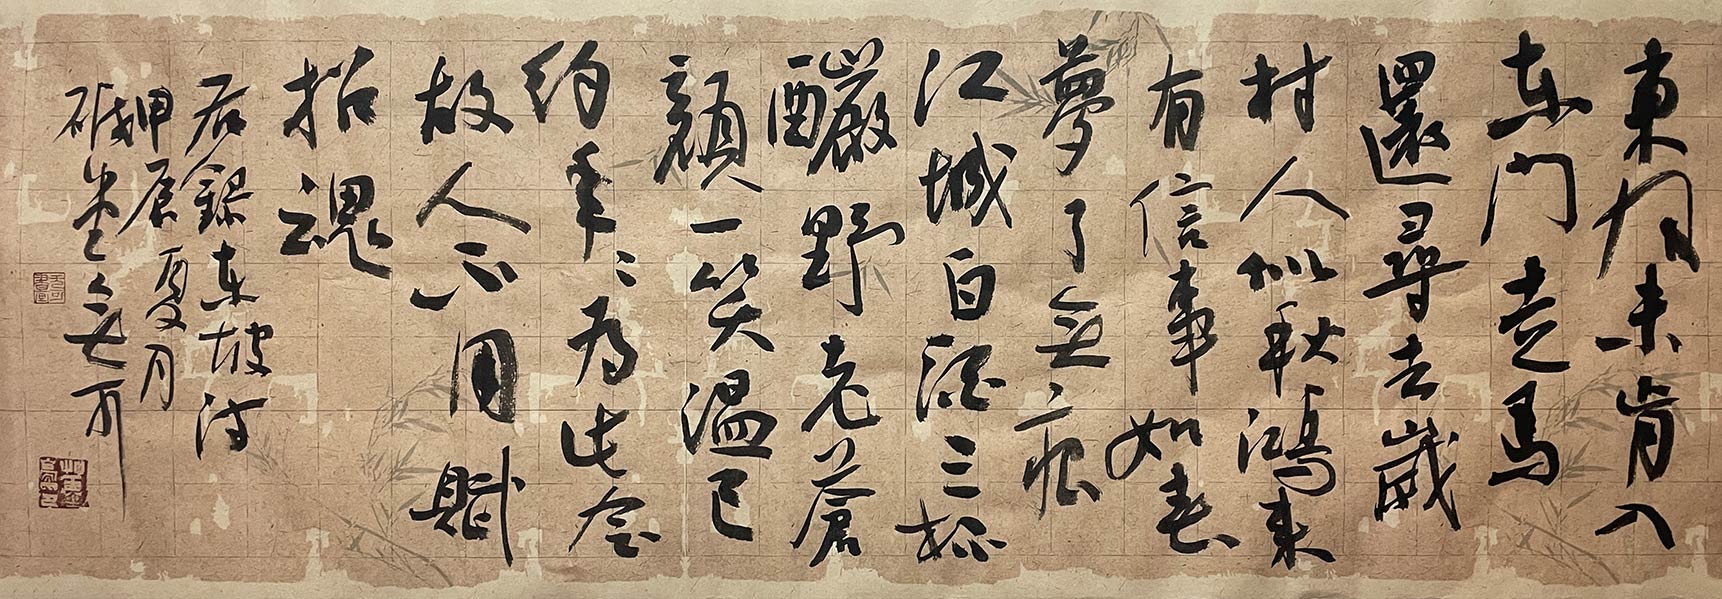 東風未肯入
东門走馬
還尋去歲
村人似秋鴻來
有信事如春
夢了無痕
江城白酒三杯
釅野老蒼
顏一笑温已
约年々為此会
故人不用賦
招魂
右錄东坡诗
甲辰夏月
堂無可